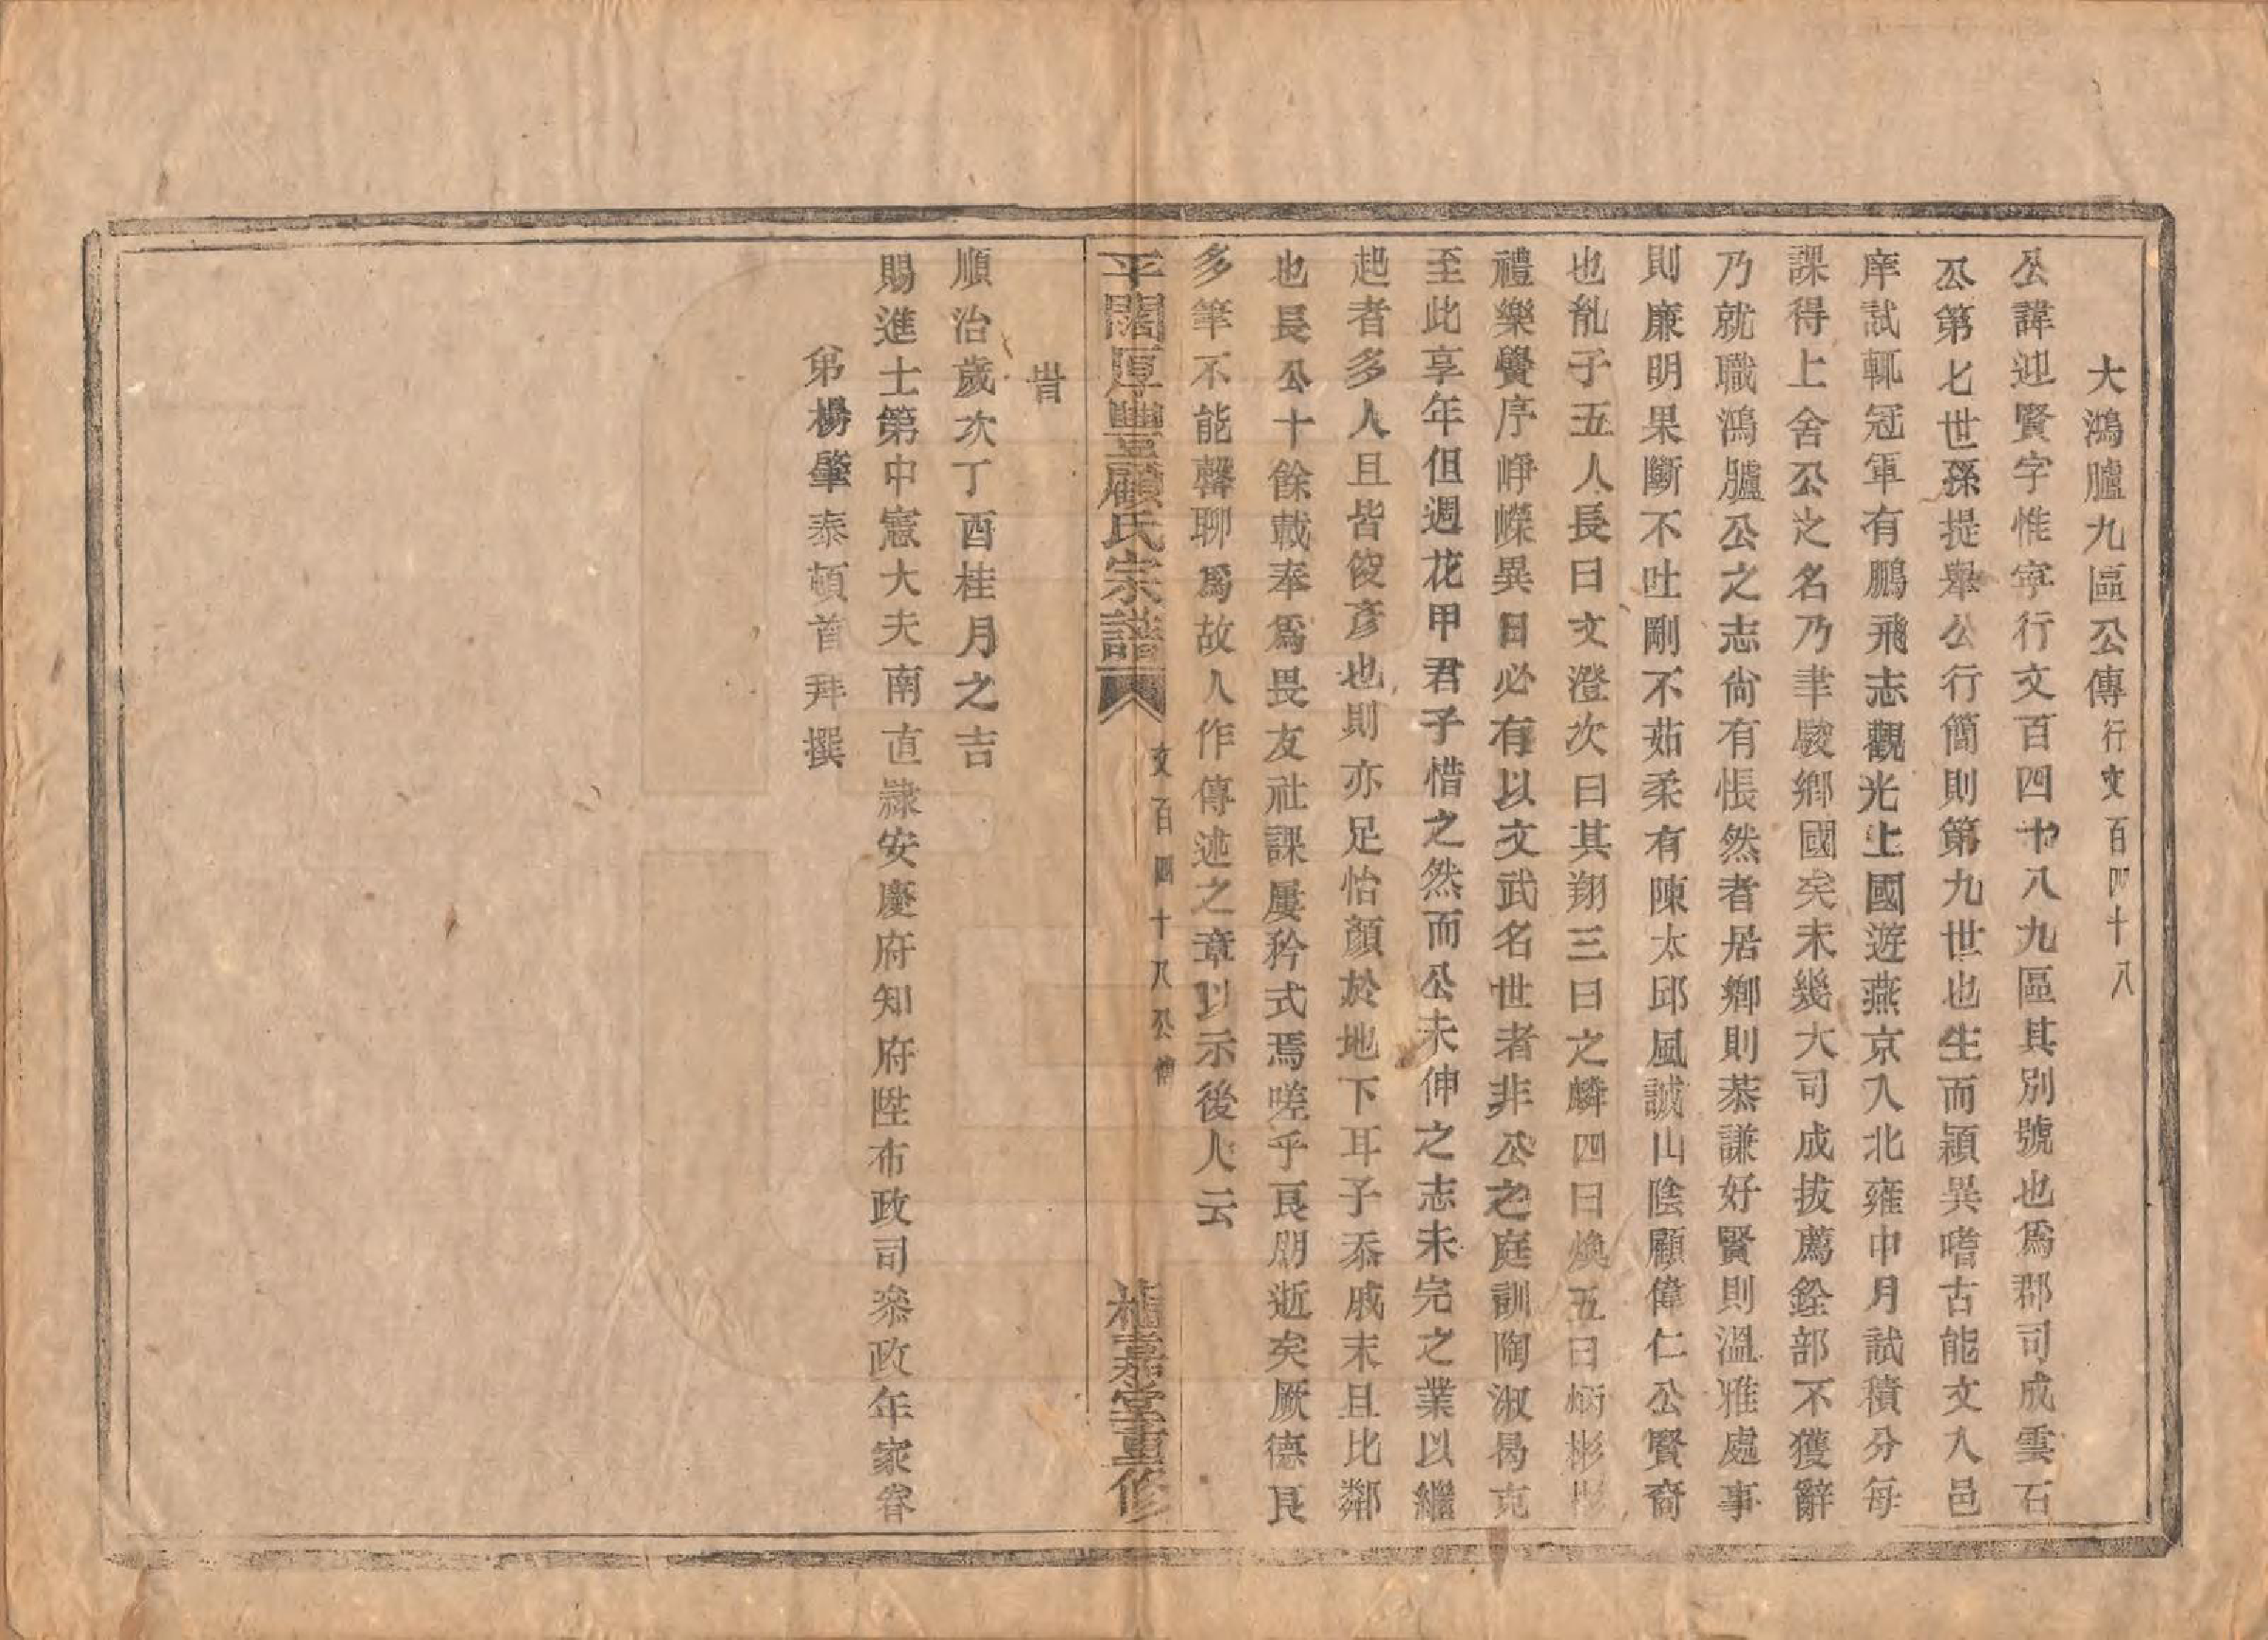 大鴻臚九區公傳行文百四十八
公諱迎賢字惟寧行文百四十八九區其別號也爲郡司成雲石
公第七世孫提舉公行簡則第九世也生而穎異嗜古能文入邑
庠試輒冠軍有鵬飛志觀光上國遊燕京入北雍中月試積分每
課得上舍公之名乃聿駿鄉國矣未幾大司成拔薦銓部不獲辭
乃就職鴻臚公之志尙有悵然者居鄉則恭謙好賢則溫雅處事
則廉明果斷不吐剛不茹柔有陳太邱風誠山陰顧偉仁公賢裔
也胤子五人長曰文澄次曰其翔三曰之麟四曰煥五曰炳彬彬
禮樂黌序崢嶸異日必有以文武名世者非公之庭訓陶淑曷克
至此享年但週花甲君子惜之然而公未伸之志未完之業以繼
起者多人且皆俊彥也則亦足怡顏於地下耳予忝戚末且比鄰
也長公十餘載奉爲畏友社課屢矜式焉嗟乎良朋逝矣厥德良
多筆不能罄聊爲故人作傳述之章以示後人云
平闊厚豐顧氏宗譜 文百四十八公傳 嘉堂重修
旹
順治歲次丁酉桂月之吉
賜進士第中憲大夫南直隸安慶府知府陞布政司叅政年家眷
弟楊肇泰頓首拜撰